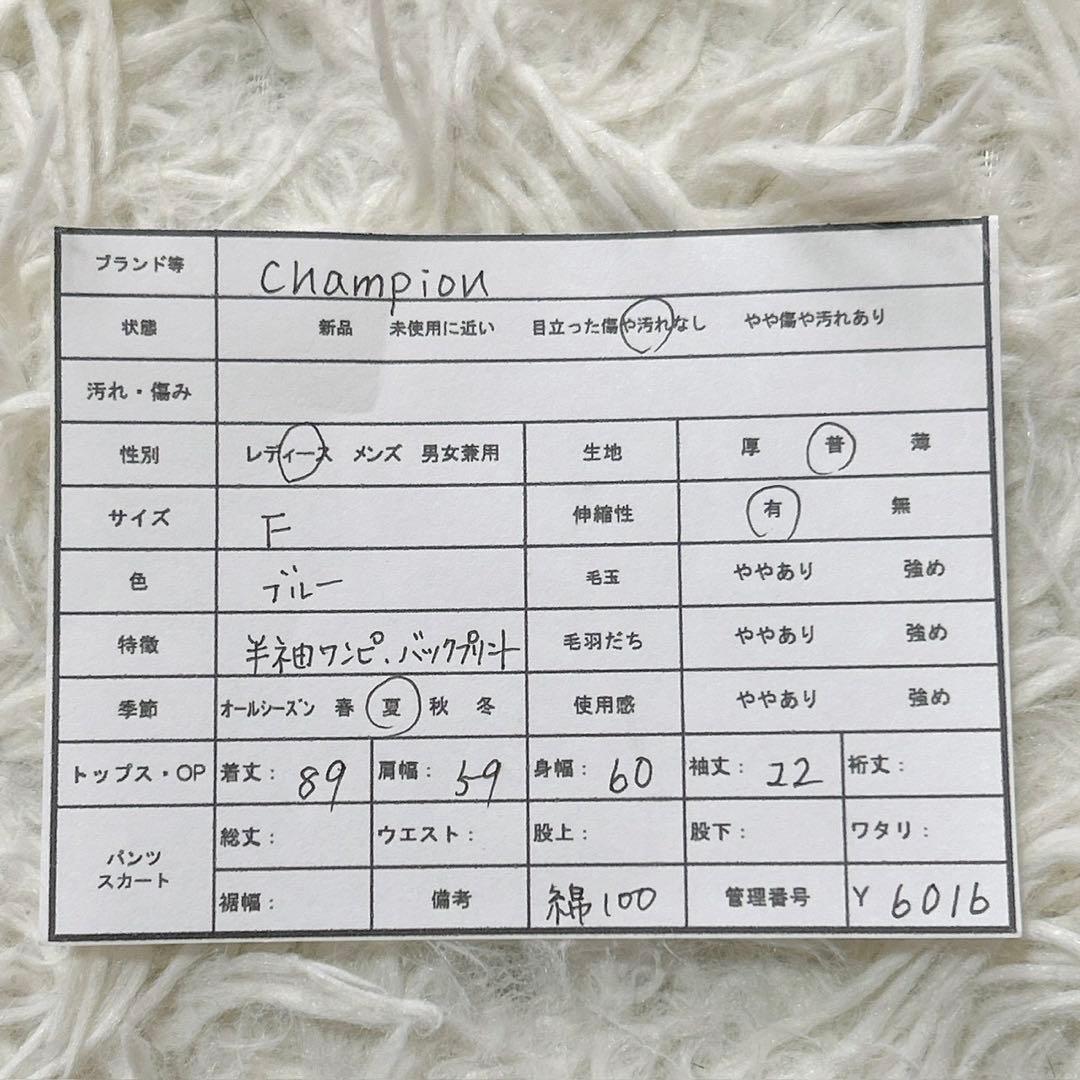 ブランド等 Champion
状態 新品 未使用に近い 目立った傷や汚れなし やや傷や汚れあり
汚れ・傷み
性別 レディース メンズ 男女兼用 生地 厚 普 薄
サイズ F 伸縮性 有 無
色 ブルー 毛玉 ややあり 強め
特徴 半袖ワンピ、バックプリント 毛羽だち ややあり 強め
季節 オールシーズン 春 夏 秋 冬 使用感 ややあり 強め
トップス・OP 着丈: 89 肩幅: 59 身幅: 60 袖丈: 22 裄丈:
パンツ スカート 総丈: ウエスト: 股上: 股下: ワタリ:
裾幅: 備考 綿100 管理番号 Y 6016